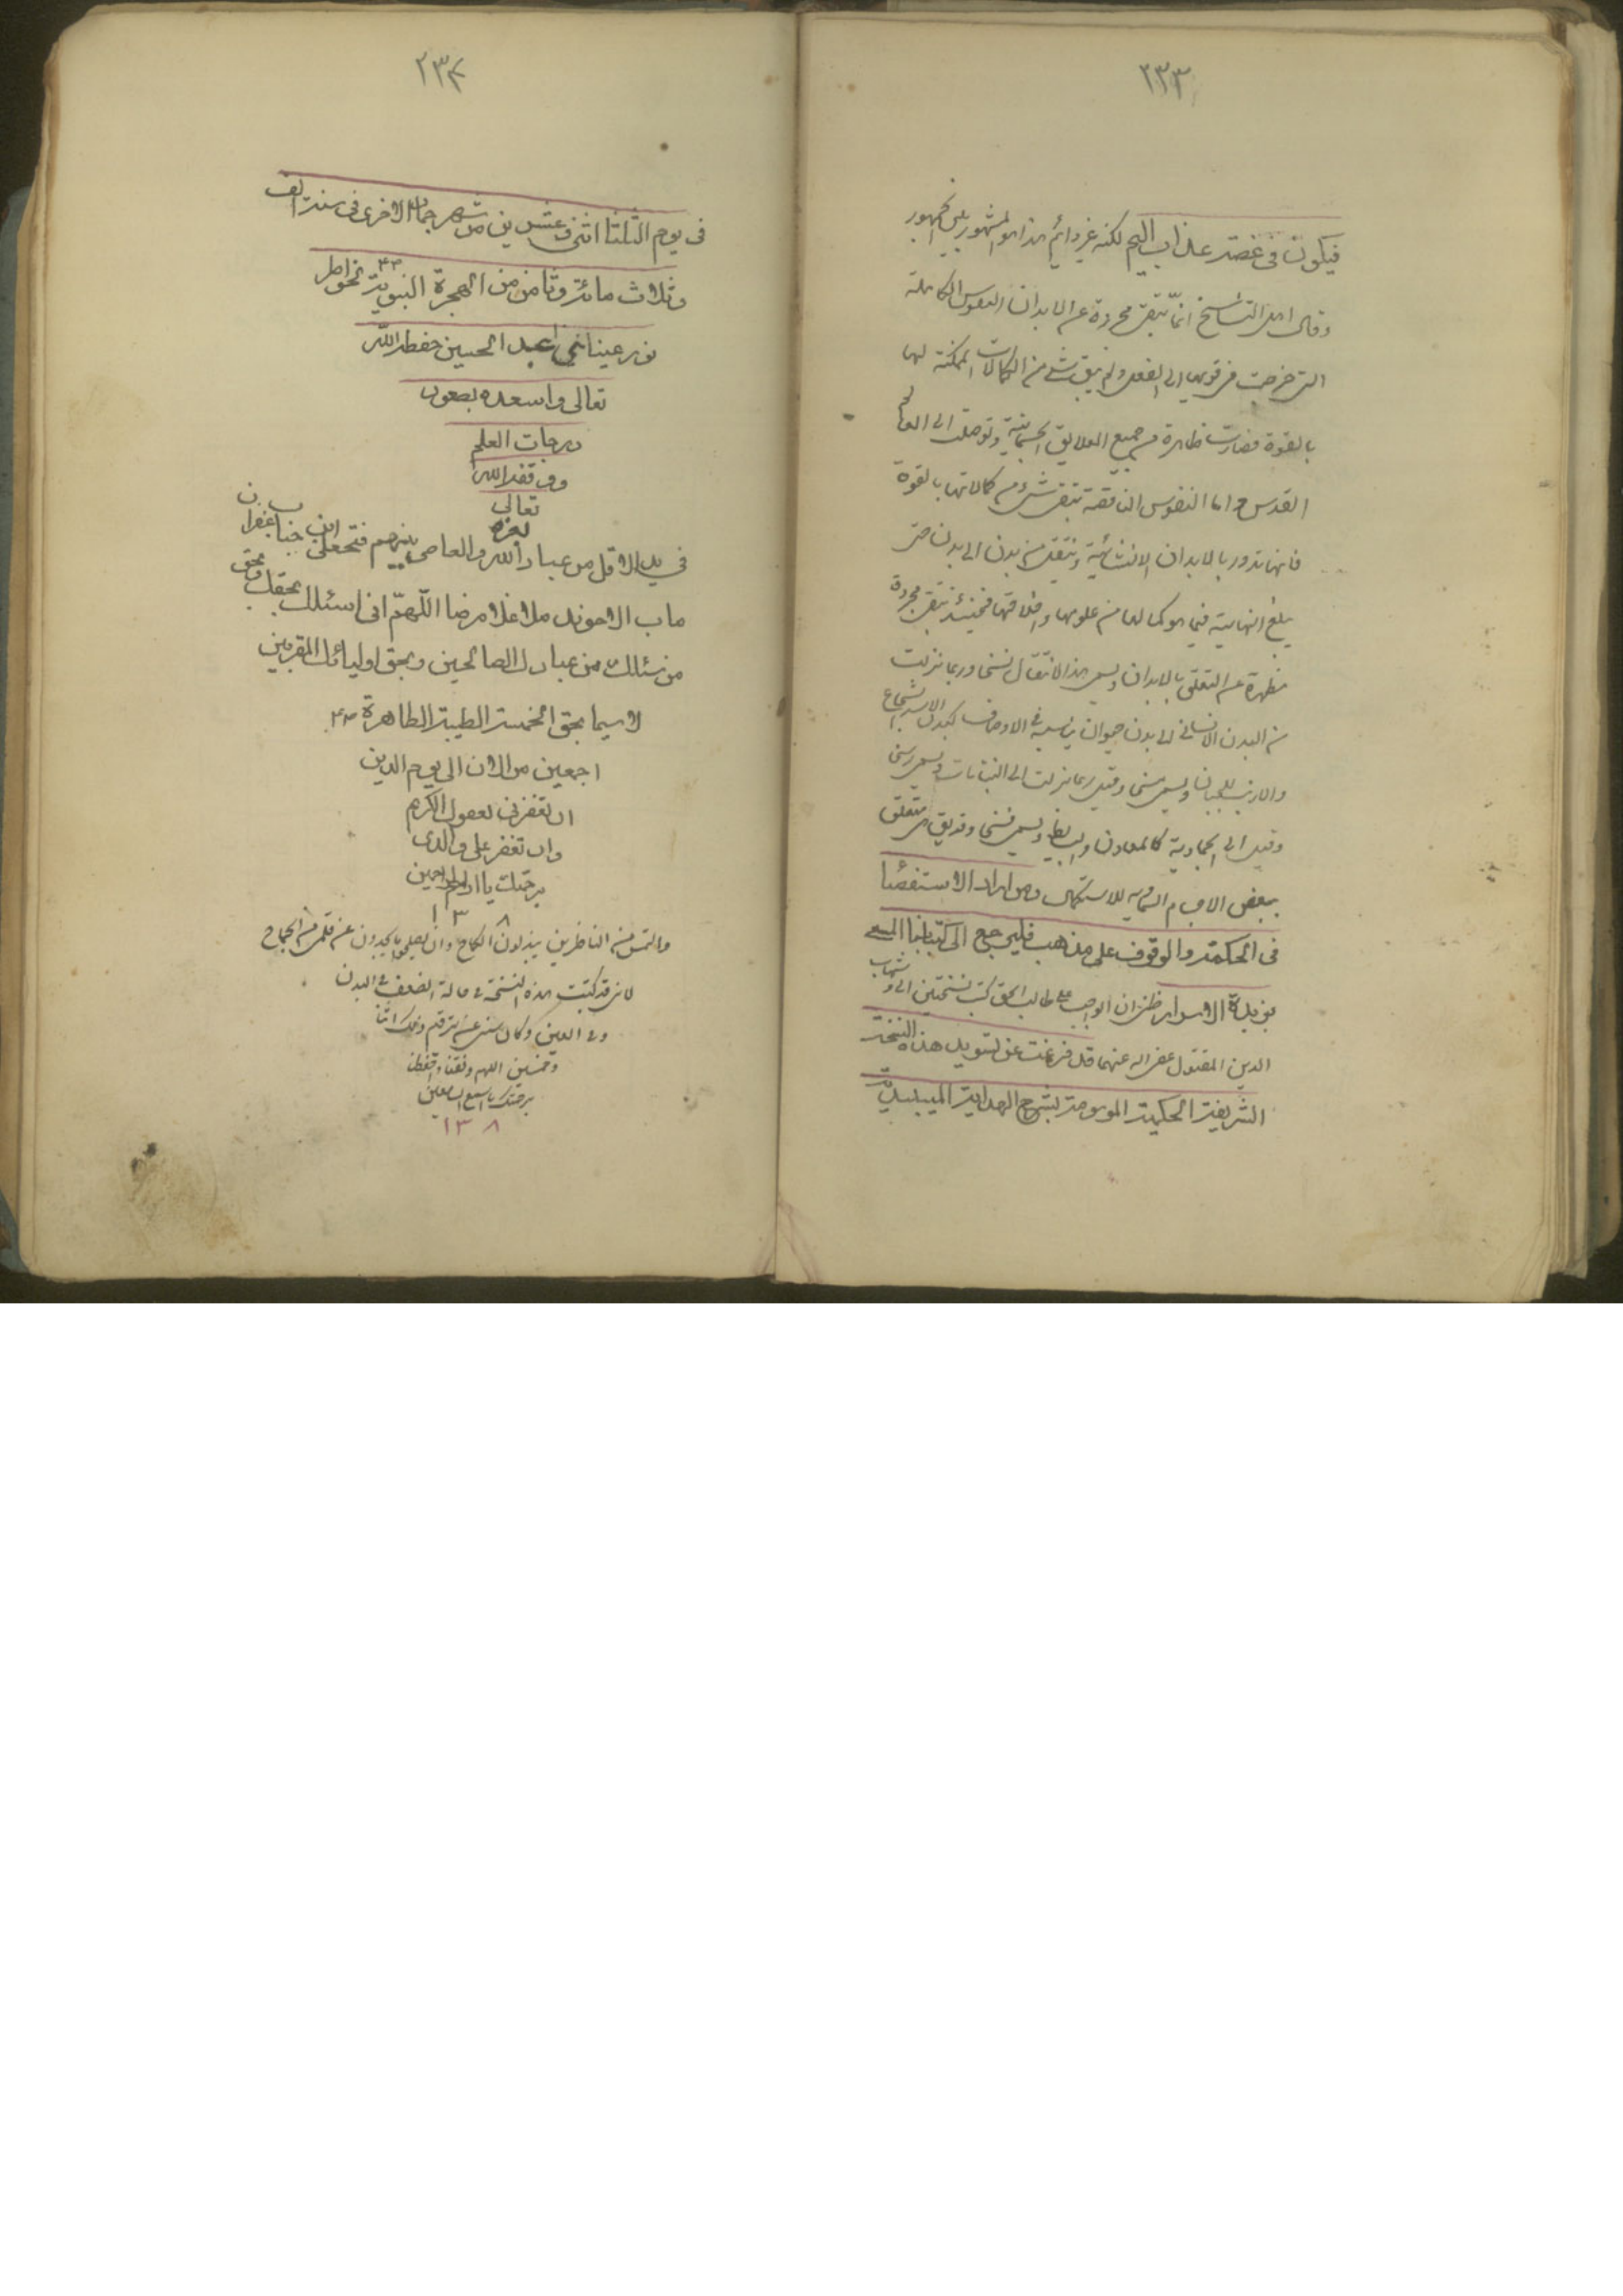 ٢٣٣
فيكون فى غصة عذاب اليم لكنه غير دائم هذا هو المشهور بين الجمهور
وقال اهل التناسخ انما تبقى مجردة عن الابدان النفوس الكاملة
التى خرجت من قوتها الى الفعل ولم يبق شئ من الكمالات الممكنة لها
بالقوة فصارت طاهرة من جميع العلايق الجسمانية وتوصلت الى العالم
القدس واما النفوس الناقصة تبقى شئ من كمالاتها بالقوة
فانها تدور بالابدان الانسانية وتنتقل من بدن الى بدن حتى
يبلغ النهاية فيما هو كمالها من علومها واخلاقها فحينئذ تبقى مجردة
مطهرة عن التعلق بالابدان ويسمى هذا الانتقال نسخا وربما نزلت
من البدن الانسانى الى بدن حيوان يناسبه فى الاوصاف كبدن الاسد للشجاع
والارنب للجبان ويسمى مسخا وقيل ربما نزلت الى النباتات ويسمى رسخا
وقيل الى الجمادية كالمعادن والبسايط ويسمى فسخا وقد يق متعلق
ببعض الاجرام السماويه للاستكمال ومن اراد الاستقصا
فى الحكمة والوقوف على مذاهب فليرجع الى كتابنا المسمى
بزبدة الاسرار ظنى ان الواجب على طالب الحق كتب نسختين الى وشهاب
الدين المقتول غفر اله عنهما قد فرغت عن تسويد هذه النسخة
الشريفة الحكمية الموسومة بشرح الهداية الميبدية
٢٣٤
فى يوم الثلثا اثنى عشرين من شهر جمادى الاخرى فى سنة الف
وثلاث مائة وثامن من الهجرة النبوية لخواطر
نور عينانى عبد الحسين حفظه الله
تعالى واسعده بصعود
درجات العلم
وفقه الله
تعالى
بعزه
فى يد الاقل من عباد الله والعاصى بينهم فتحعلى ابن جناب غفران
ماب الاخوند ملا غلامرضا اللهم انى اسئلك بحقك وبحق
من سئلك من عبادك الصالحين وبحق اوليائك المقربين
لاسيما بحق الخمسة الطيبة الطاهرة
اجمعين من الان الى يوم الدين
ان تغفر لى بعفوك الكرم
وان تغفر على والدى
برحمتك يا ارحم الراحمين
١٣٨
والتمس من الناظرين وان يصلحوا ما يجدون من قلمى
لانى قد كتبت هذه النسخة فى حالة الضعف فى البدن
وفى العين وكان
وخمسين اللهم وفقنا واحفظنا
برحمتك يا اسمع السامعين
١٣٨